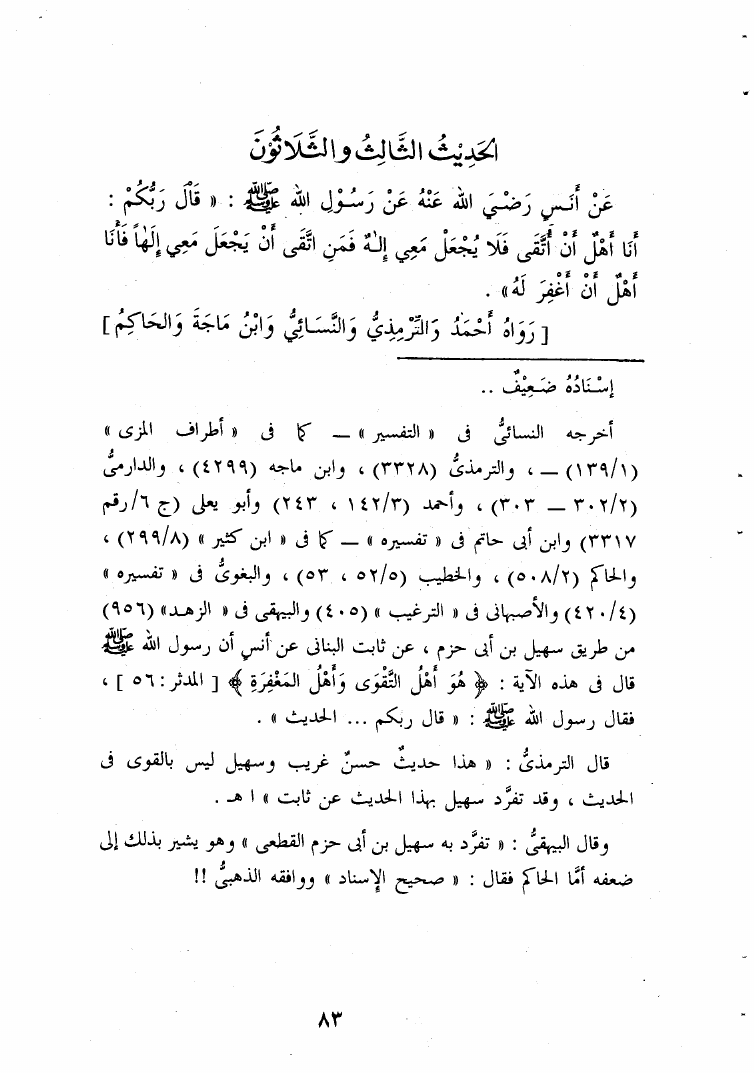 الحَدِيْثُ الثَّالِثُ والثَّلَاثُوْنَ
عَنْ أَنَسٍ رَضْيَ اللهُ عَنْهُ عَنْ رَسُوْلِ اللهِ ﷺ : « قَالَ رَبُّكُمْ :
أَنَا أَهْلٌ أَنْ أُتَّقَى فَلَا يُجْعَلْ مَعِي إِلٰهٌ فَمَنِ اتَّقَى أَنْ يَجْعَلَ مَعِي إِلَهاً فَأَنَا
أَهْلٌ أَنْ أَغْفِرَ لَهُ» .
[ رَوَاهُ أَحْمَدُ وَالتِّرْمِذِيُّ وَالنَّسَائِيُّ وَابْنُ مَاجَةَ وَالحَاكِمُ ]
إسْنَادُهُ ضَعِيْفٌ ..
أخرجه النسائىُّ فى « التفسير » — كما فى « أطراف المزى »
(١٣٩/١) — ، والترمذىُّ (٣٣٢٨) ، وابن ماجه (٤٢٩٩) ، والدارمىُّ
(٣٠٢/٢ — ٣٠٣) ، وأحمد (١٤٢/٣ ، ٢٤٣) وأبو يعلى (ج ٦/رقم
٣٣١٧) وابن أبى حاتم فى « تفسيره » — كما فى « ابن كثير » (٢٩٩/٨) ،
والحاكم (٥٠٨/٢) ، والخطيب (٥٢/٥ ، ٥٣) ، والبغوىُّ فى « تفسيره »
(٤٢٠/٤) والأصبهانى فى « الترغيب » (٤٠٥) والبيهقى فى « الزهد» (٩٥٦)
من طريق سهيل بن أبى حزم ، عن ثابت البنانى عن أنس أن رسول الله ﷺ
قال فى هذه الآية : ﴿ هُوَ أَهْلُ التَّقْوَى وَأَهْلُ المَغْفِرَةِ ﴾ [ المدثر : ٥٦ ] ،
فقال رسول الله ﷺ : « قال ربكم ... الحديث » .
قال الترمذىُّ : « هذا حديثٌ حسنٌ غريب وسهيل ليس بالقوى فى
الحديث ، وقد تفرَّد سهيل بهذا الحديث عن ثابت » ا هـ .
وقال البيهقىُّ : « تفرَّد به سهيل بن أبى حزم القطعى » وهو يشير بذلك إلى
ضعفه أمَّا الحاكم فقال : « صحيح الإسناد » ووافقه الذهبىُّ !!
٨٣